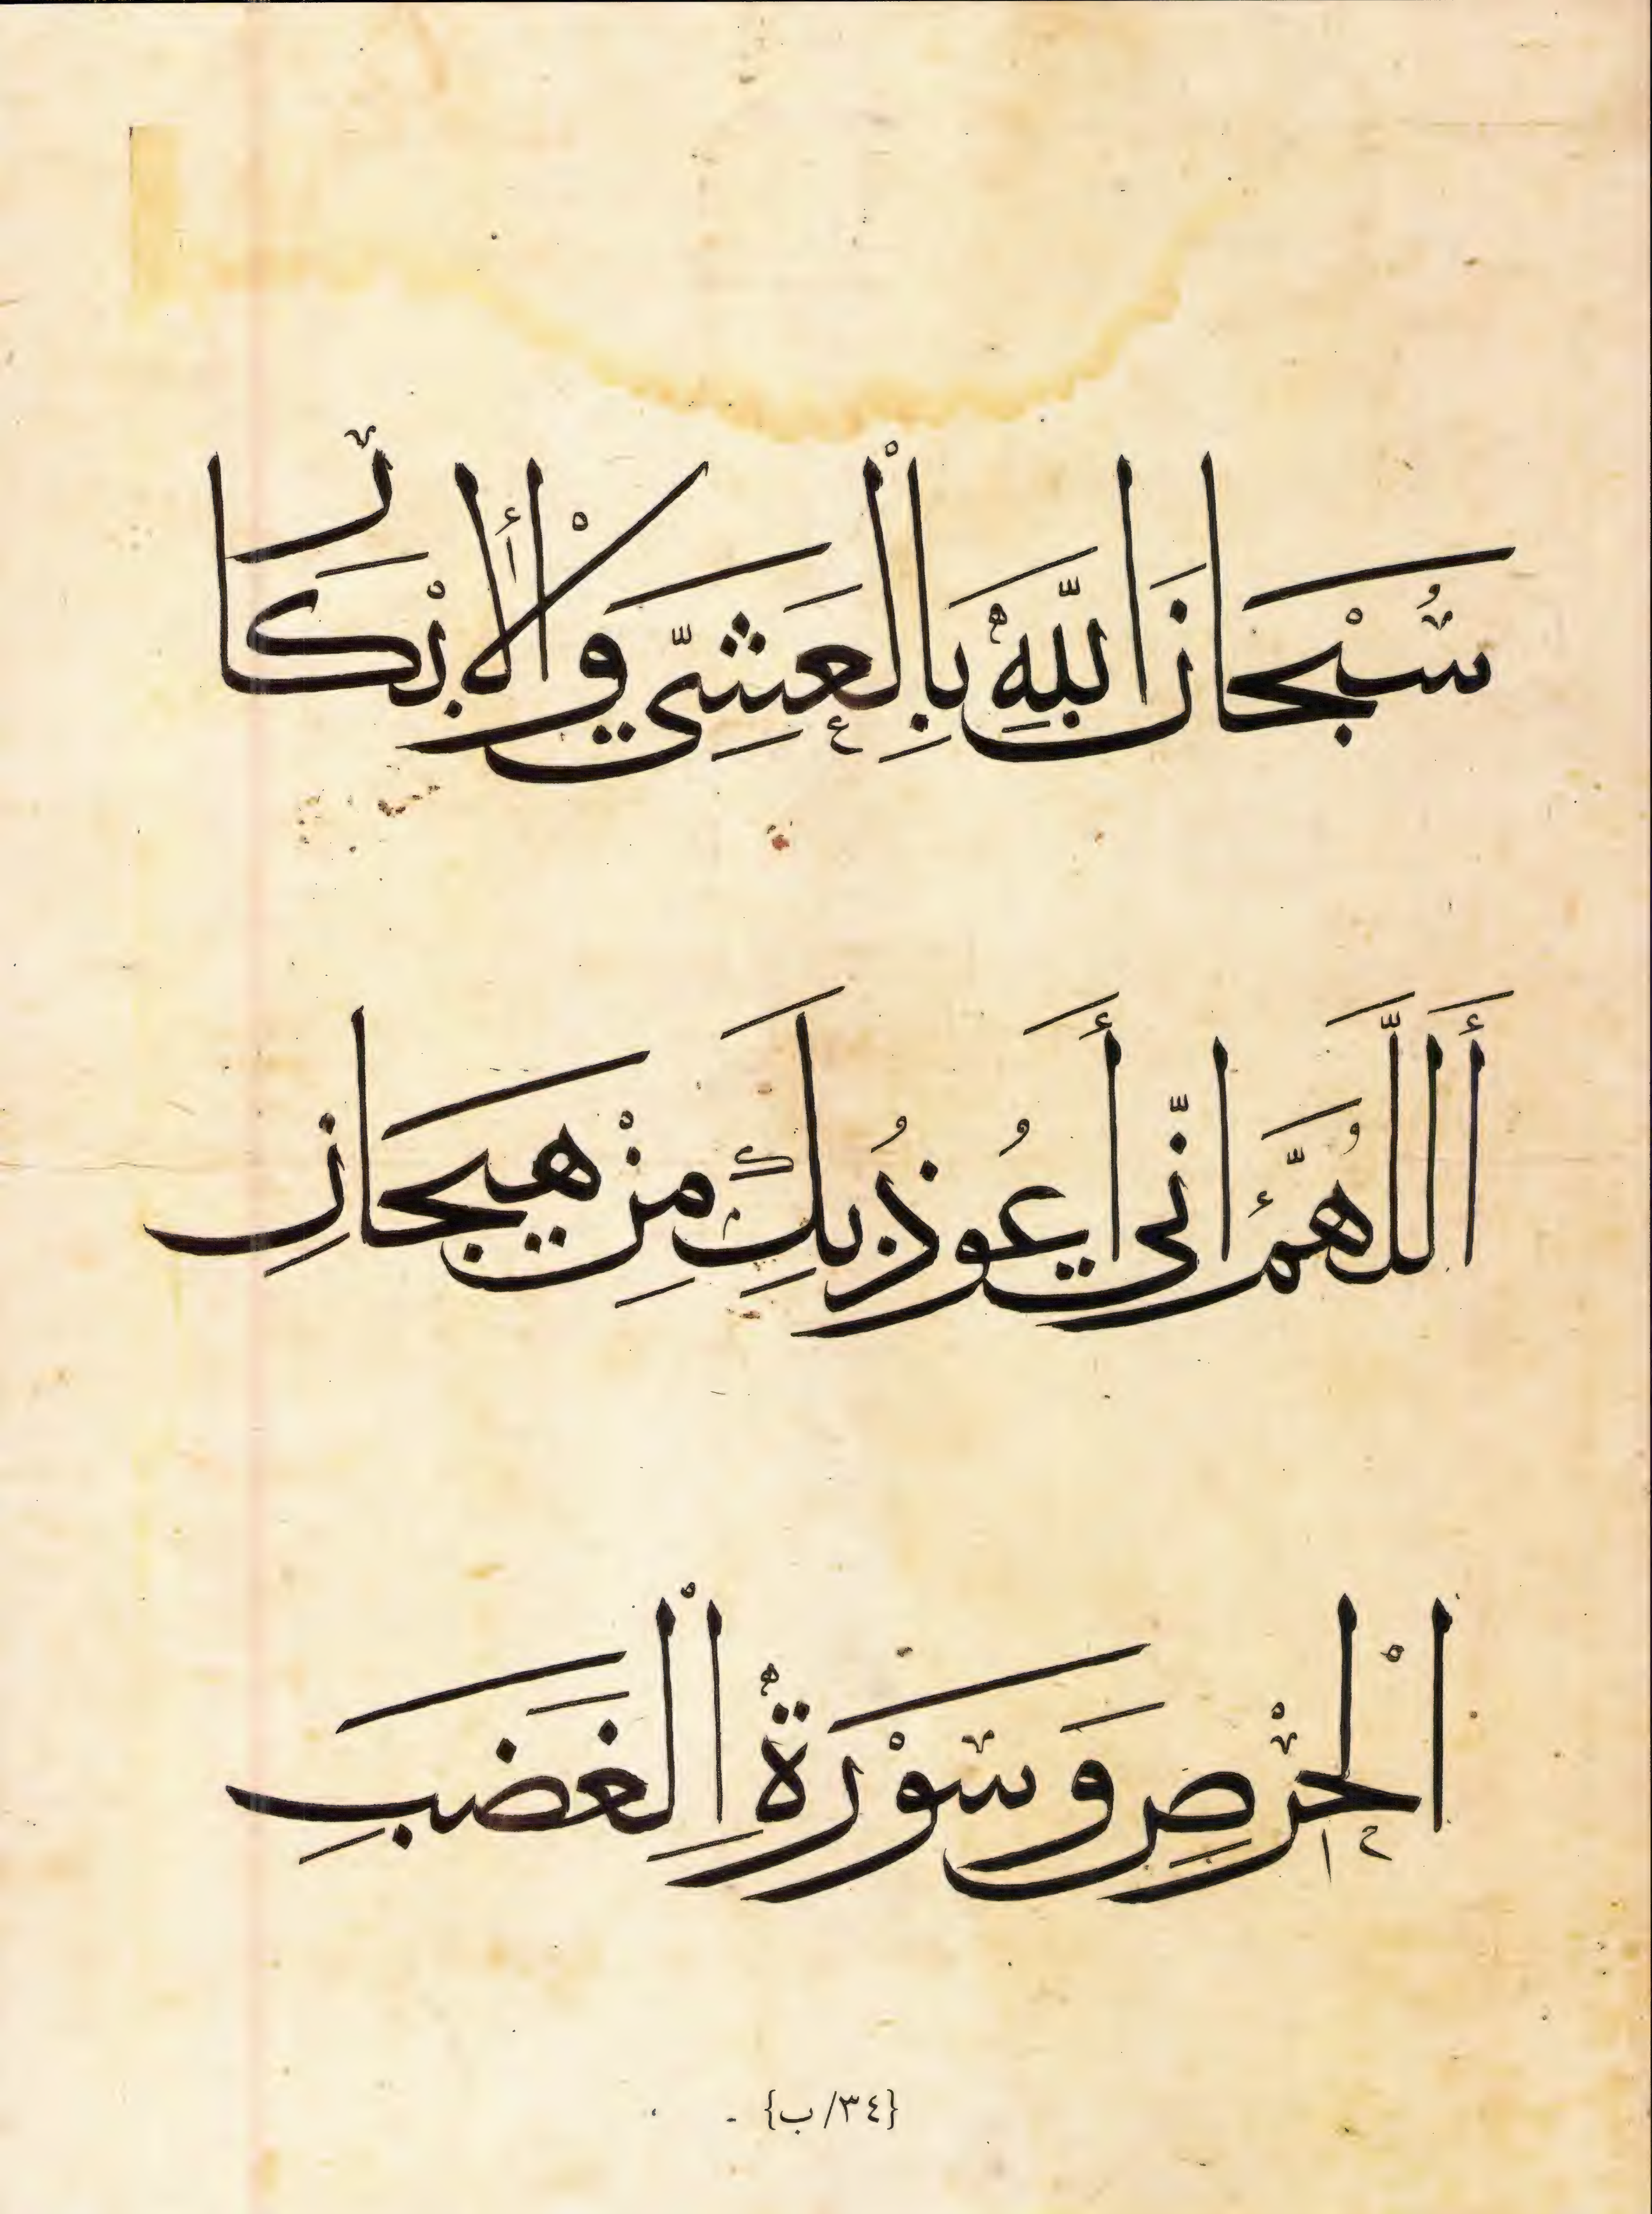 سُبْحَانَ اللّٰهِ بِالْعَشِيِّ وَالْأِبْكَارِ
أَللَّهُمَّ اِنّي أَعُوذُ بِكَ مِنْ هَيَجَانِ
الْحِرْصِ وَسَوْرَةِ الْغَضَبِ
{٣٤/ب}